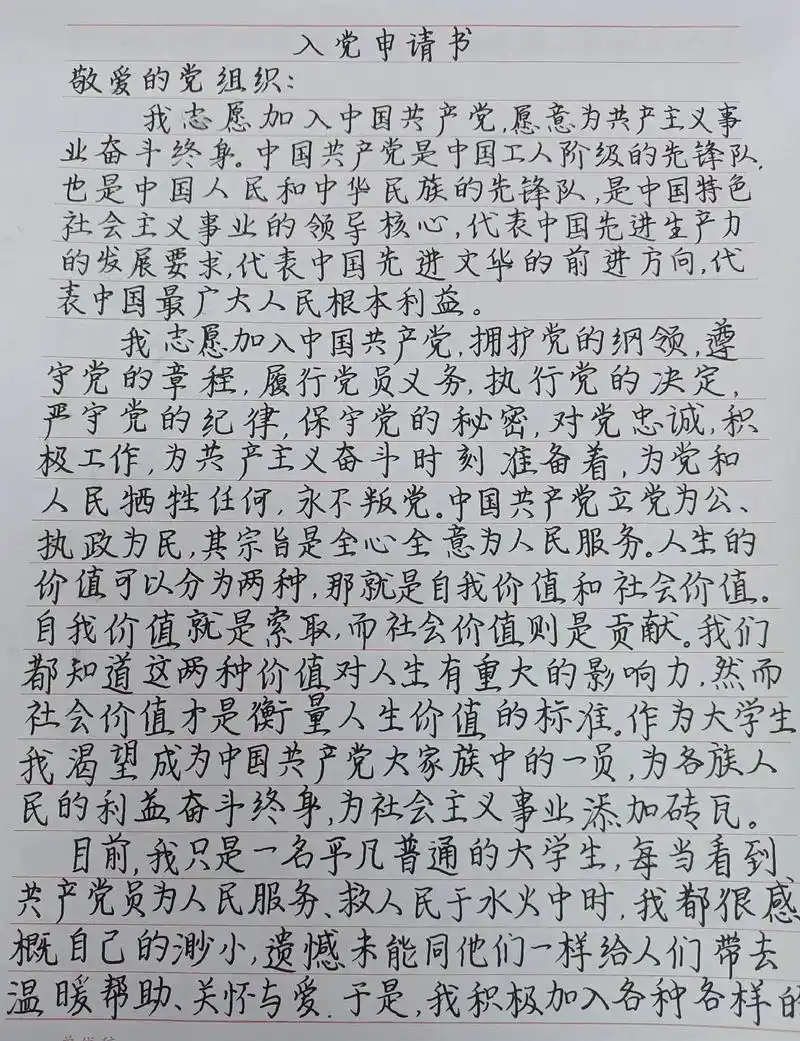 入党申请书
敬爱的党组织:
我志愿加入中国共产党,愿意为共产主义事
业奋斗终身。中国共产党是中国工人阶级的先锋队,
也是中国人民和中华民族的先锋队,是中国特色
社会主义事业的领导核心,代表中国先进生产力
的发展要求,代表中国先进文华的前进方向,代
表中国最广大人民根本利益。
我志愿加入中国共产党,拥护党的纲领,遵
守党的章程,履行党员义务,执行党的决定,
严守党的纪律,保守党的秘密,对党忠诚,积
极工作,为共产主义奋斗时刻准备着,为党和
人民牺牲任何,永不叛党。中国共产党立党为公、
执政为民,其宗旨是全心全意为人民服务。人生的
价值可以分为两种,那就是自我价值和社会价值。
自我价值就是索取,而社会价值则是贡献。我们
都知道这两种价值对人生有重大的影响力,然而
社会价值才是衡量人生价值的标准。作为大学生
我渴望成为中国共产党大家族中的一员,为各族人
民的利益奋斗终身,为社会主义事业添加砖瓦。
目前,我只是一名平凡普通的大学生,每当看到
共产党员为人民服务、救人民于水火中时,我都很感
概自己的渺小,遗憾未能同他们一样给人们带去
温暖帮助、关怀与爱.于是,我积极加入各种各样的